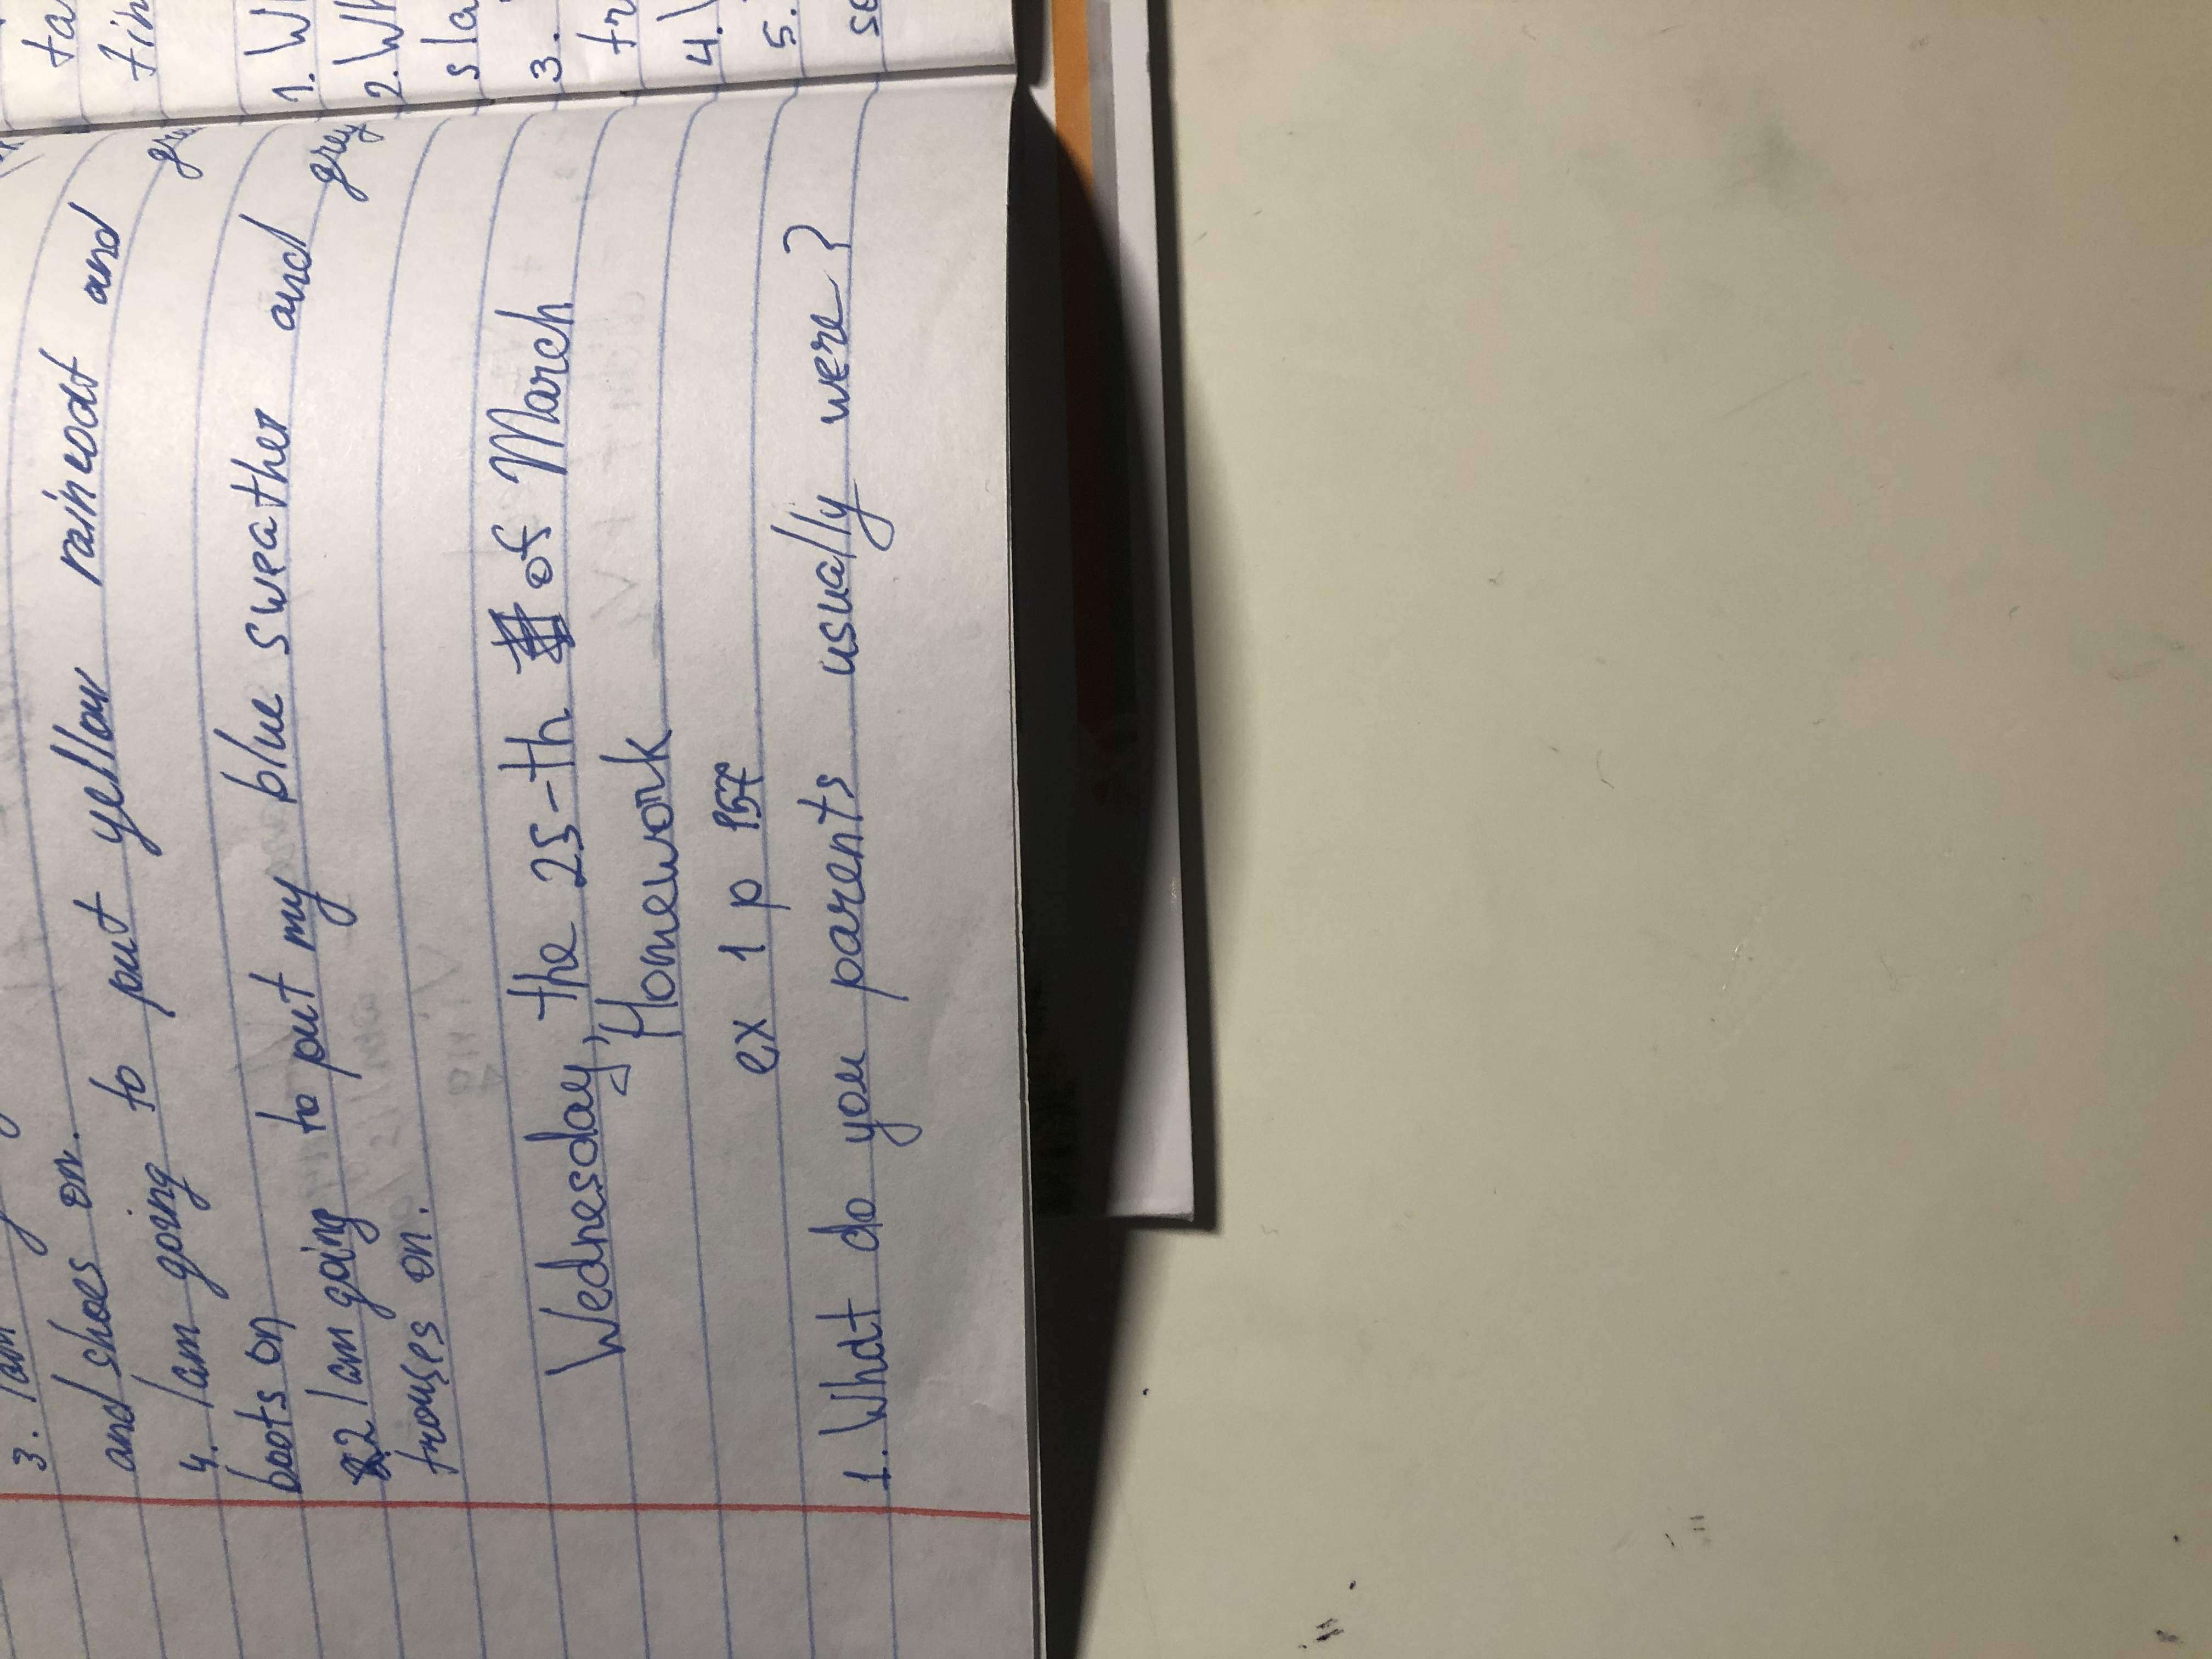 3. I am
and shoes on.
4. I am going to put yellow raincoat and
boots on
2 I am going to put my blue sweather and grey
trouses on.
Wednesday, the 25-th of March
Homework
ex 1 p 157
1. What do you parents usually were?
ta
tin
1. W
2. Wh
sla
3.
tr
4.
5.
se